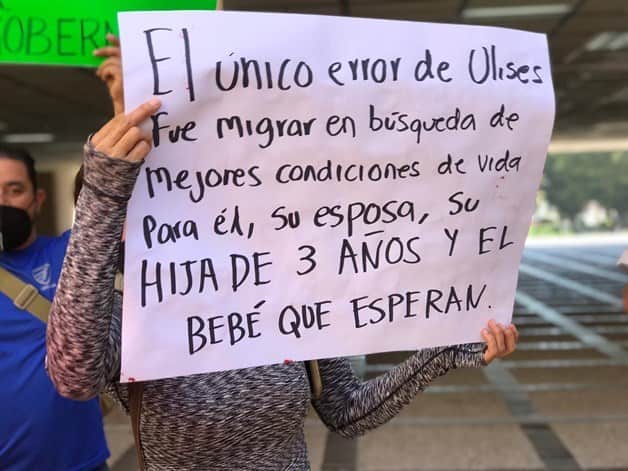 OBERN
El único error de Ulises
Fue migrar en búsqueda de
mejores condiciones de vida
Para él, su esposa, su
HIJA DE 3 AÑOS Y EL
BEBÉ QUE ESPERAN.